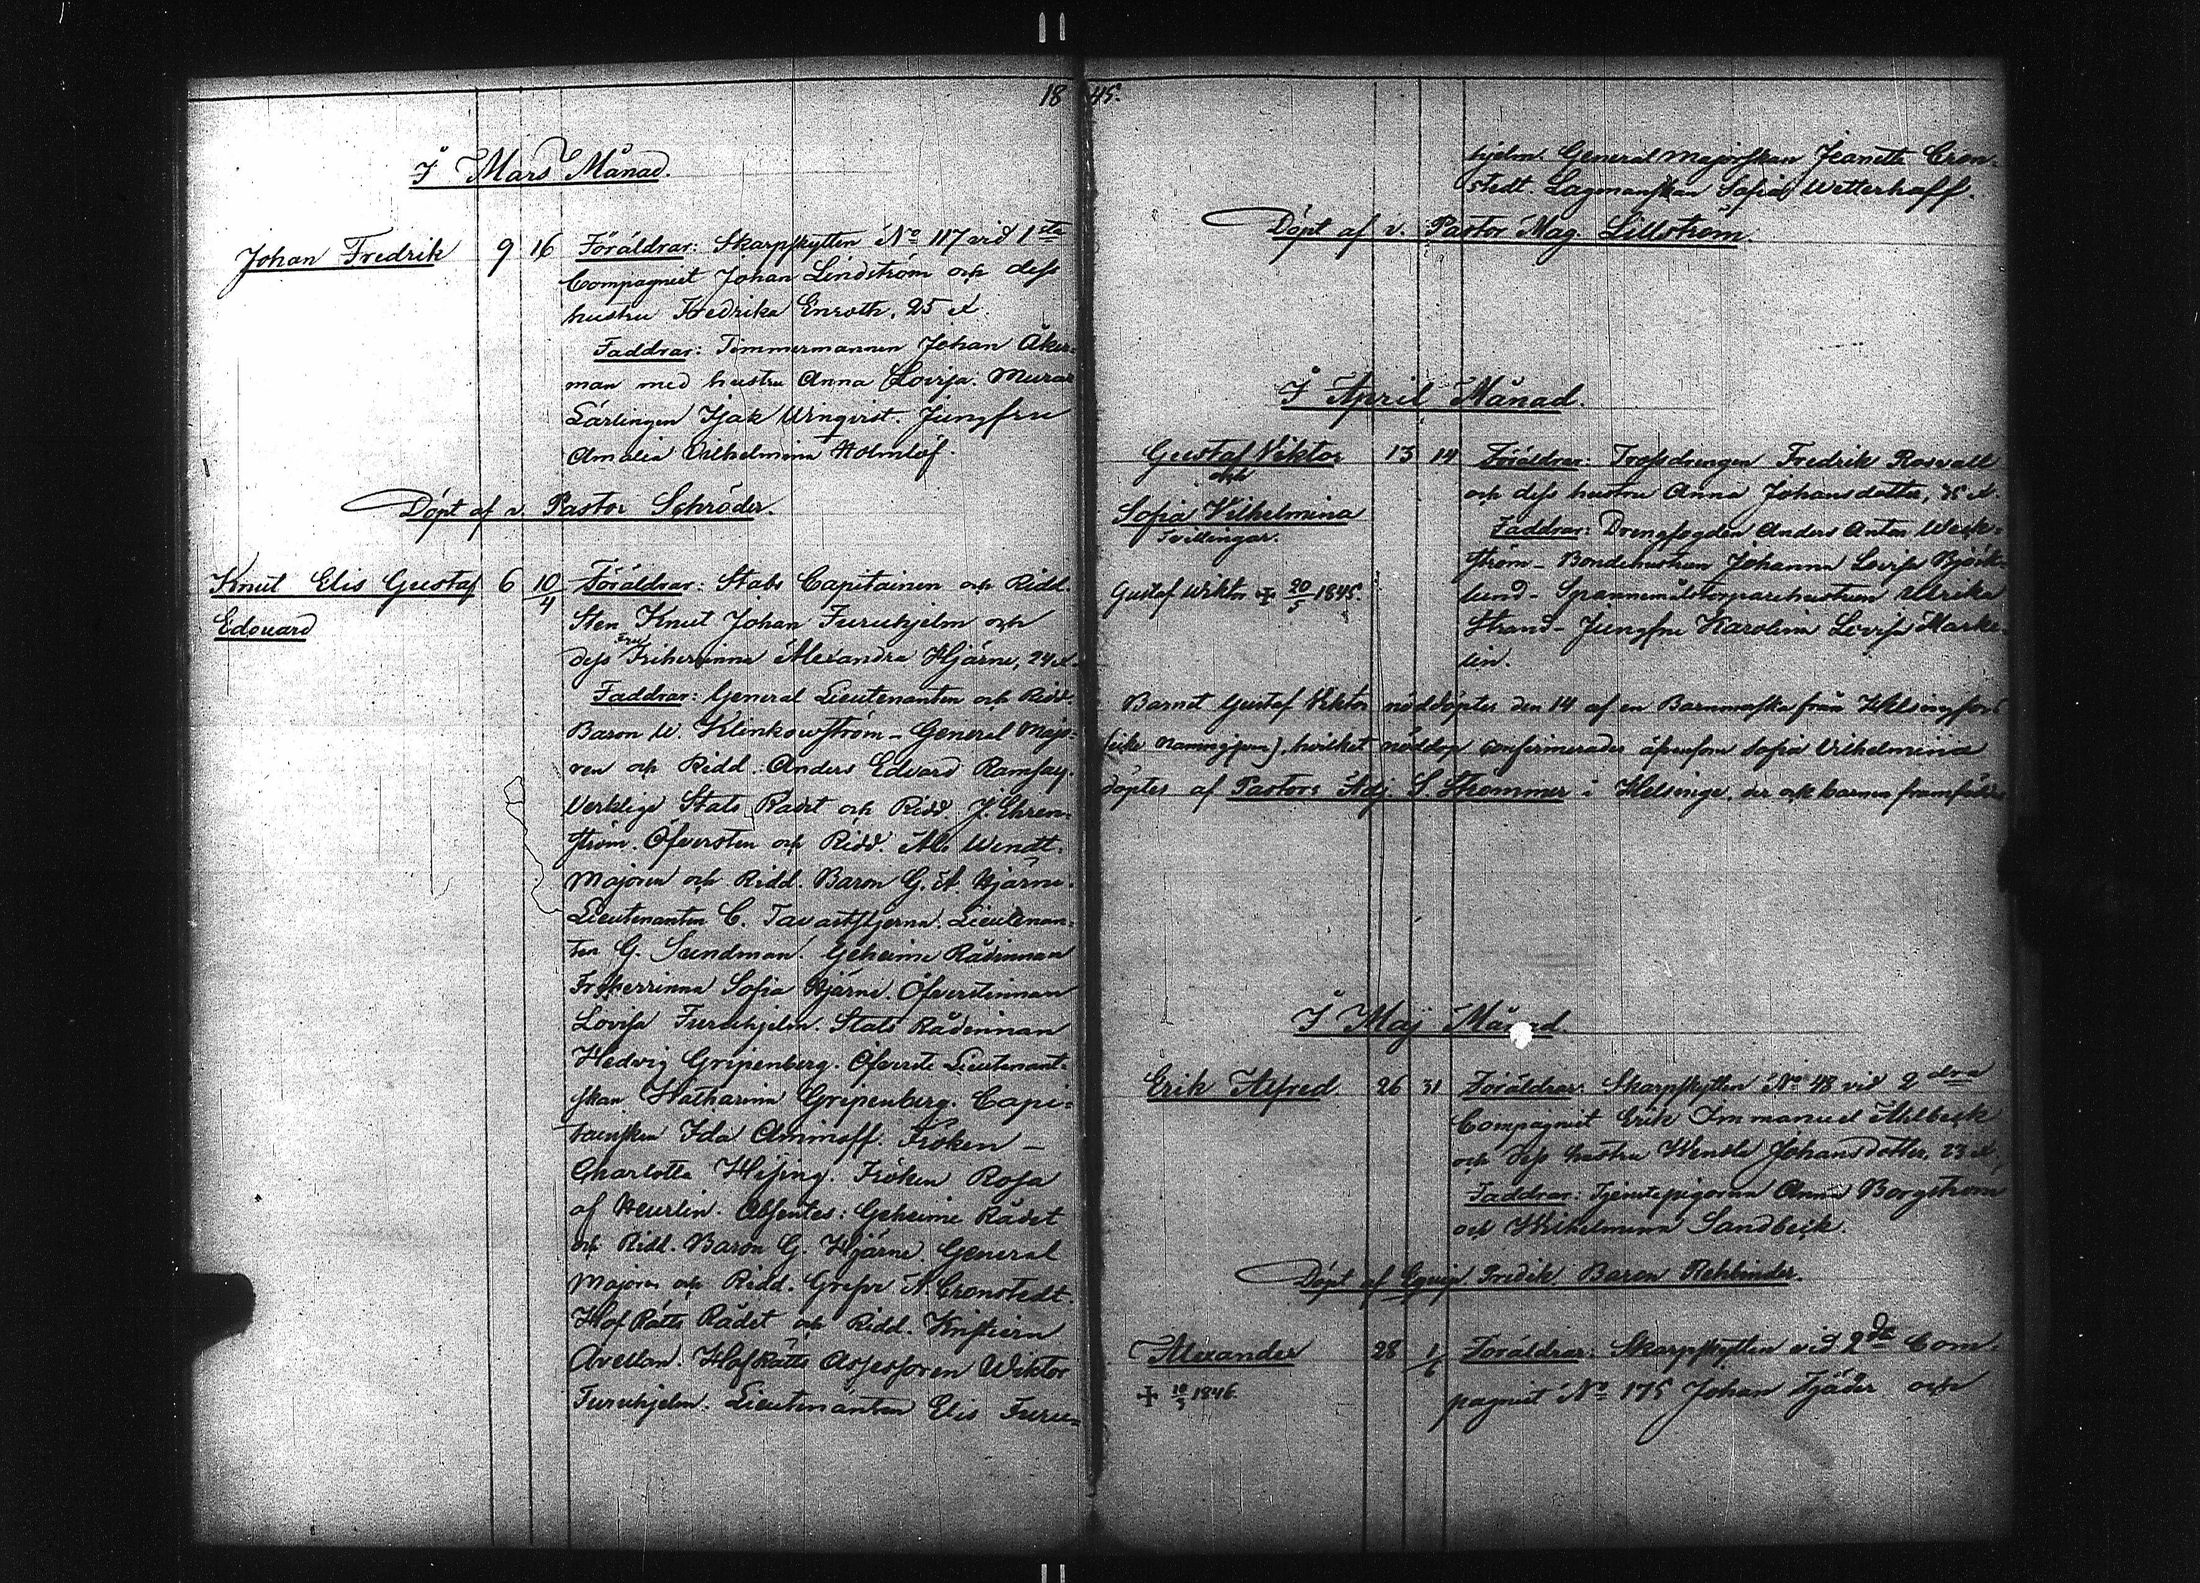 1845.
I Mars Månad.
Johan Fredrik 9 16 Föräldrar: Skarpskytten No 117 vid 1sta
Compagniet Johan Lindström och dess
hustru Fredrika Enroth, 25 år.
Faddrar: Timmermannen Johan Åker-
man med hustru Anna Lovisa. Murar
Lärlingen Isak Urnqvist. Jungfru
Amalia Vilhelmina Holmlöf.
Döpt af v. Pastor Schröder.
Knut Elis Gustaf 6 10/4 Föräldrar: Stabs Capitainen och Ridd.
Edouard
Sten Knut Johan Furuhjelm och
dess Fru Friherrinna Alexandra Hjärne, 24 år.
Faddrar: General Lieutenanten och Ridd.
Baron Klinkowström - General Majo-
ren och Ridd. Anders Edvard Ramsay.
Verklige Stats Rådet och Ridd. J. Ehren-
ström. Öfversten och Ridd. Al. Wendt.
Majoren och Ridd. Baron G. A. Hjärne.
Lieutenanten C. Tavaststjerna. Lieutenan-
ten G. Sundman. Geheime Rådinnan
Friherrinna Sofia Hjärne. Öfverstinnan
Lovisa Furuhjelm. Stats Rådinnan
Hedvig Gripenberg. Öfverste Lieutenant-
skan Katharina Gripenberg. Capi-
tainskan Ida Aminoff. Fröken -
Charlotta Hising. Fröken Rosa
af Heurlin. Absentes: Geheime Rådet
och Ridd. Baron G. Hjärne. General
Majoren och Ridd. Grefve A. Cronstedt.
Hof Rätts Rådet och Ridd. Kristiern
Avellan. Hof Rätts Assessoren Wiktor
Furuhjelm. Lieutenanten Elis Furu-
hjelm. General Majorskan Jeanette Cron-
stedt. Lagmanskan Sofia Wetterhoff.
Döpt af v. Pastor Mag. Lillström.
I April Månad.
Gustaf Viktor 13 14 Föräldrar: Trossdrengen Fredrik Rosvall
och
och dess hustru Anna Johansdotter, 35 år.
Sofia Vilhelmina
Tvillingar.
Faddrar: Drengfogden Anders Anton Weck-
ström - Bondehustrun Johanna Lovisa Björk-
Gustaf Wiktor + 20/5 1845.
lund - Spannemålstorparehustrun Ulrika
Strand - Jungfru Karolina Lovisa Marke-
lin.
Barnet Gustaf Viktor nöddöptes den 14 af en Barnmorska från Helsingfors
(icke namngifven), hvilket nöddop confirmerades äfvensom Sofia Vilhelmina
döptes af Pastors Adj. S Strömmer i Helsinge, der ock barnen framfördes
I Maj Månad
Erik Alfred. 26 31 Föräldrar: Skarpskytten No 48 vid 2dra
Compagniet Erik Immanuel Ahlbeck
och dess hustru Wendla Johansdotter, 23 år,
Faddrar: Tjenstepigorna Anna Borgström
och Wilhelmina Sandbeck.
Döpt af Fredrik Baron Rehbinder.
Alexander 28 1/6 Föräldrar: Skarpskytten vid 2dra Com-
+ 10/5 1846.
pagniet No 175 Johan Tjäder och